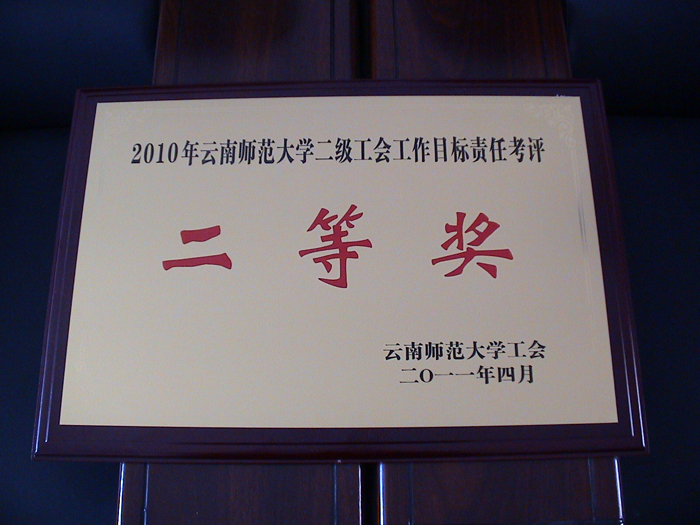 2010年云南师范大学二级工会工作目标责任考评
二等奖
云南师范大学工会
二O一一年四月